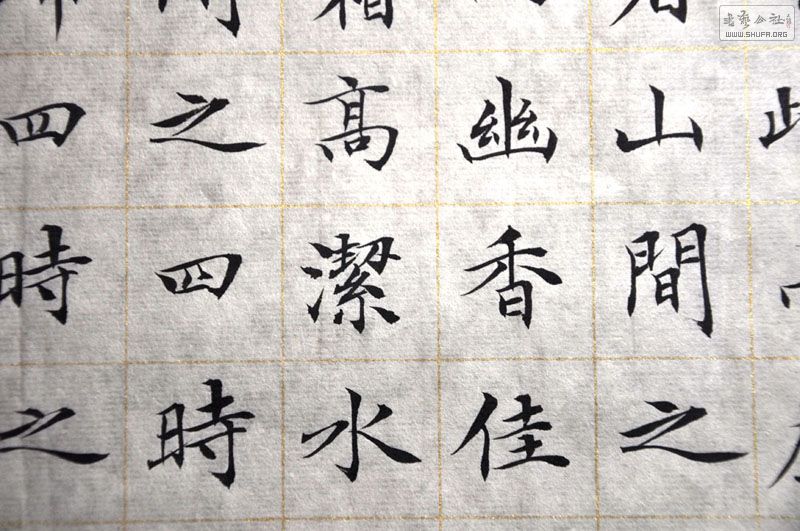 山間之
幽香佳
髙潔水
之四時
四時之
書藝公社
WWW.SHUFA.ORG